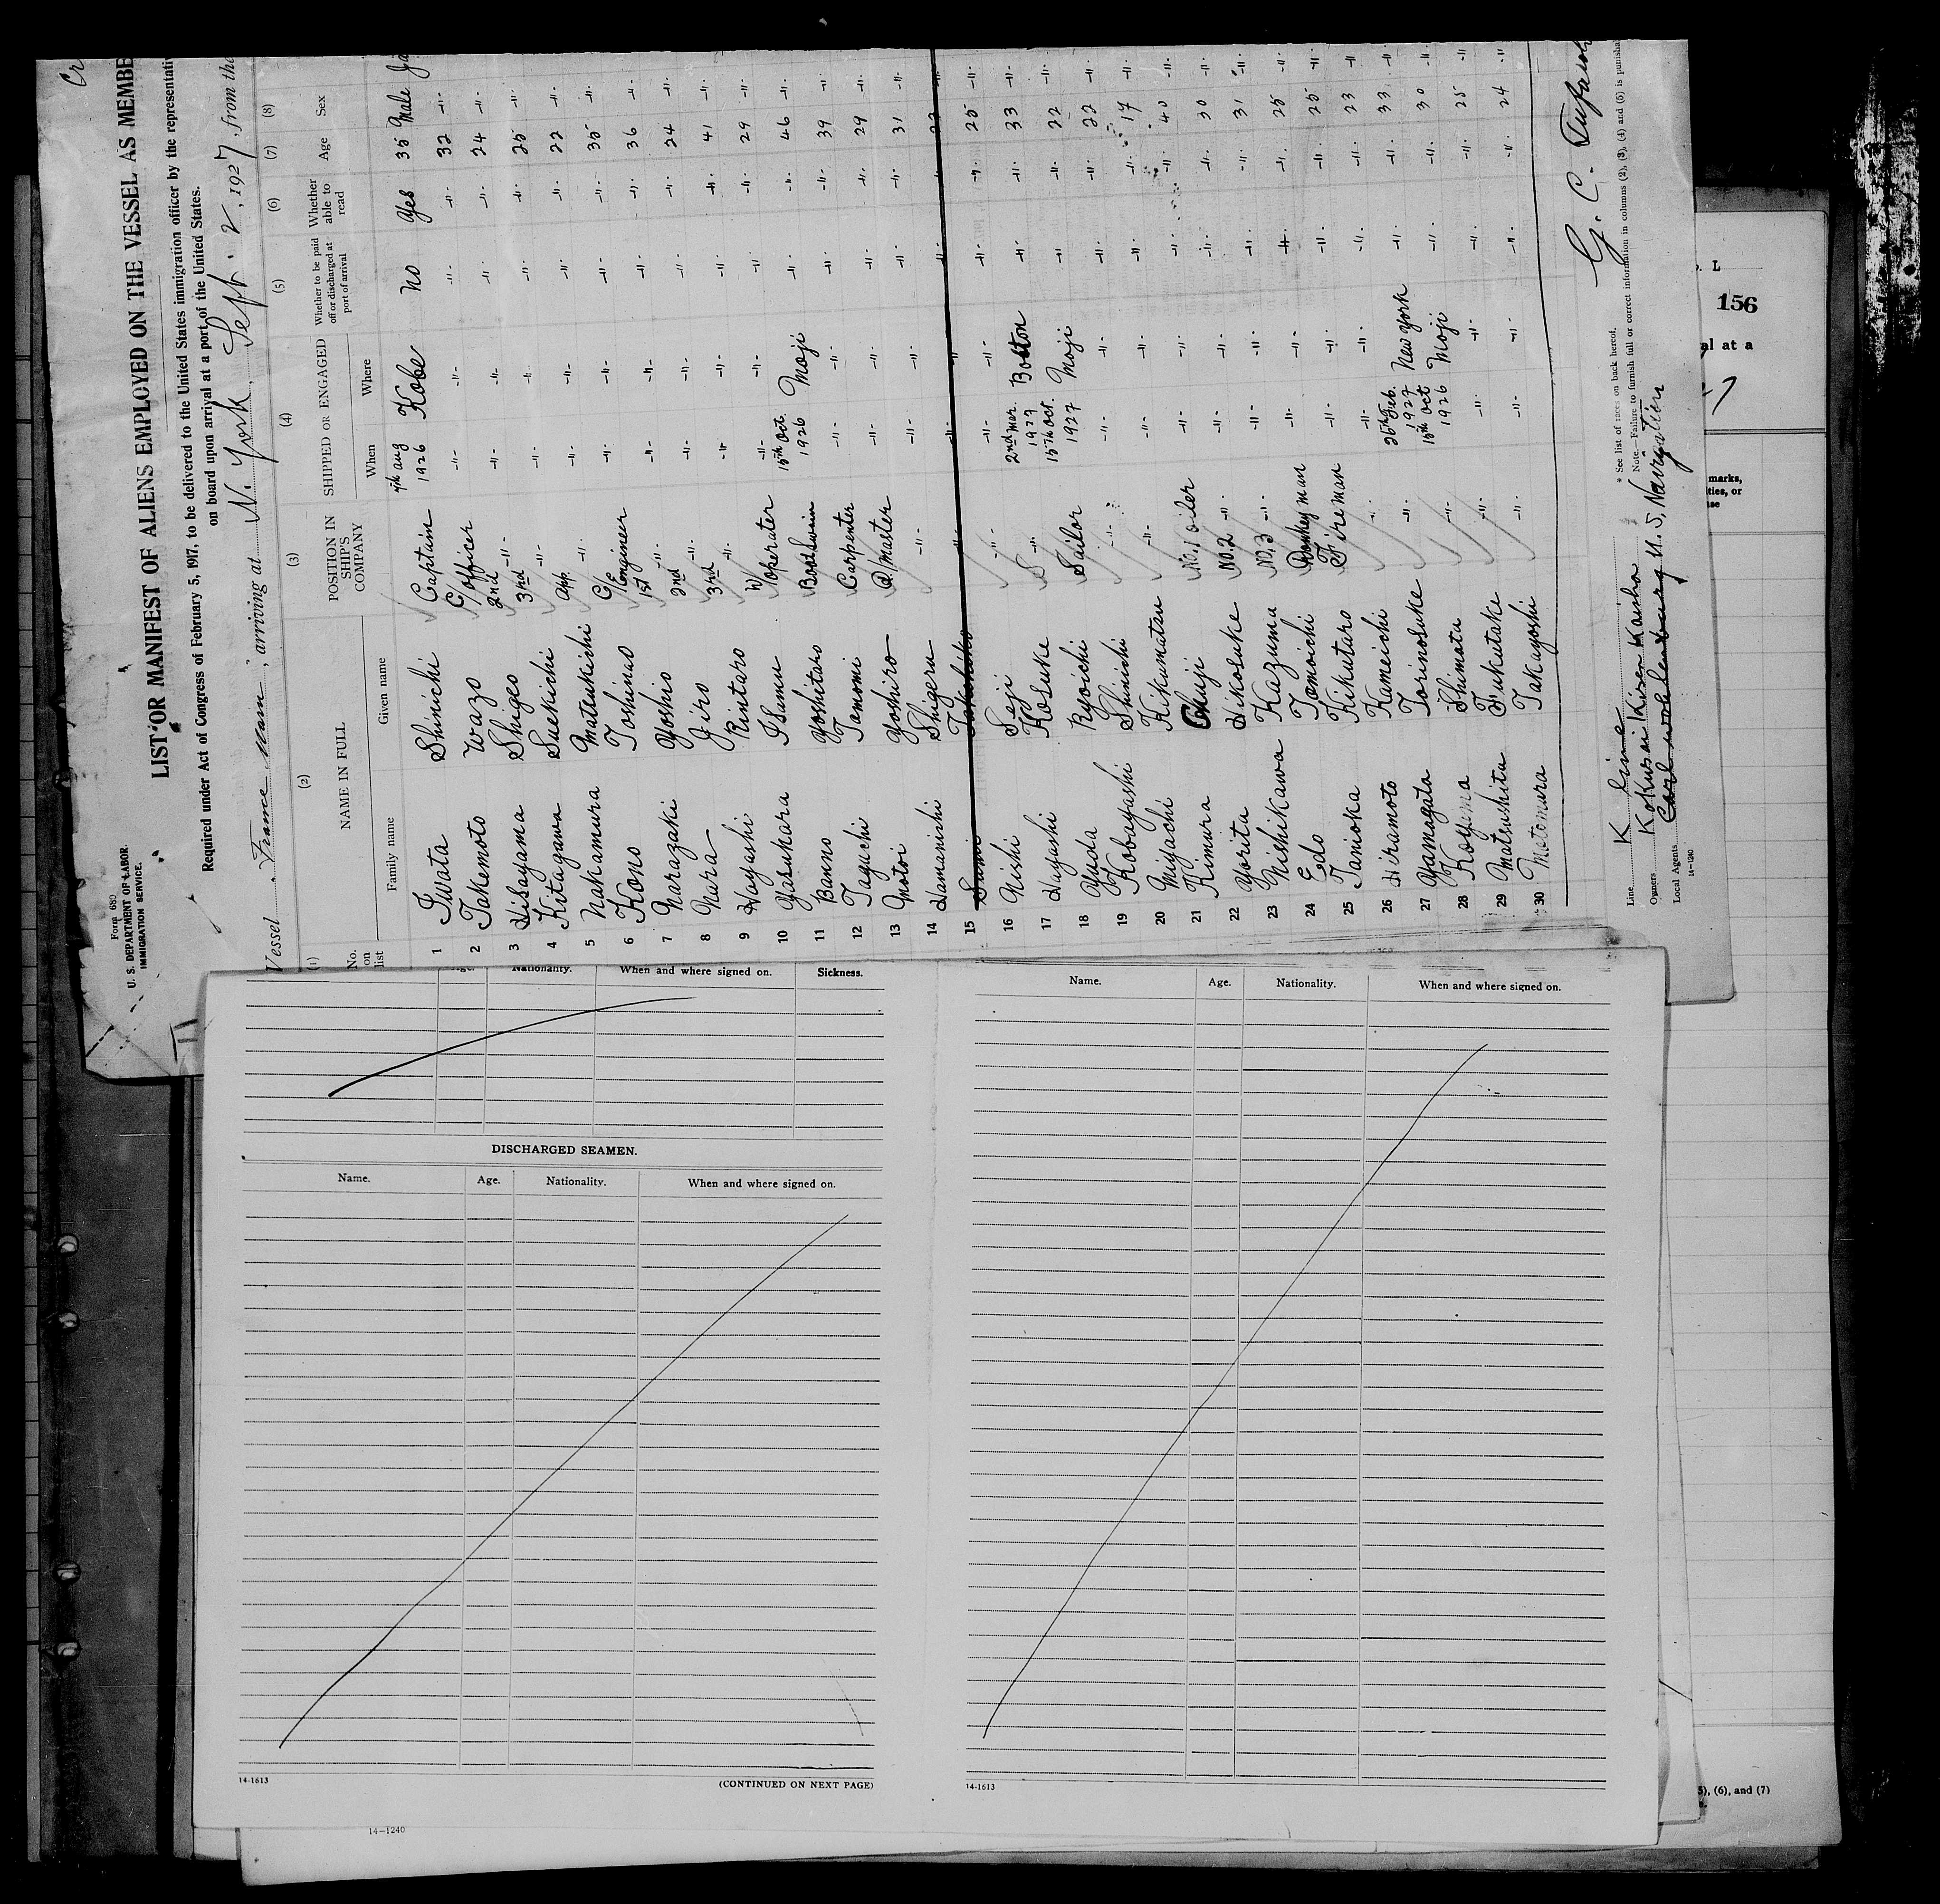 Cr
Form 680
U. S. DEPARTMENT OF LABOR
IMMIGRATION SERVICE.
LIST OR MANIFEST OF ALIENS EMPLOYED ON THE VESSEL AS MEMBE
Required under Act of Congress of February 5, 1917, to be delivered to the United States immigration officer by the representativ
on board upon arrival at a port of the United States.
Vessel France Maru, arriving at N. York, Sept. 2, 1927, from the
(1) (2) (3) (4) (5) (6) (7) (8)
No. on list NAME IN FULL POSITION IN SHIP'S COMPANY SHIPPED OR ENGAGED Whether to be paid off or discharged at port of arrival Whether able to read Age Sex
Family name Given name When Where
1 Iwata Shinichi Captain 7th aug 1926 Kobe No Yes 35 Male Ja
2 Takemoto Wazo C/officer -"- -"- -"- -"- 32 -"-
3 Hisayama Shigeo 2nd -"- -"- -"- -"- -"- 24 -"-
4 Kitagawa Suekichi 3rd -"- -"- -"- -"- -"- 25 -"-
5 Nakamura Matsukichi app. -"- -"- -"- -"- -"- 22 -"-
6 Kono Toshinao C/Engineer -"- -"- -"- -"- 35 -"-
7 Narazaki Yoshio 1st -"- -"- -"- -"- -"- 36 -"-
8 Nara Jiro 2nd -"- -"- -"- -"- -"- 24 -"-
9 Hayashi Rintaro 3rd -"- -"- -"- -"- -"- 41 -"-
10 Yasukara Isamu W/operater -"- -"- -"- -"- 29 -"-
11 Banno Yoshitaro Boatswain 15th Oct. 1926 Moji -"- -"- 46 -"-
12 Taguchi Tamomi Carpenter -"- -"- -"- -"- 39 -"-
13 Motoi Yoshiro Q/Master -"- -"- -"- -"- 29 -"-
14 Hamanishi Shigeru -"- -"- -"- -"- -"- 31 -"-
15 Sumii Takehiko -"- -"- -"- -"- -"- 22 -"-
16 Nishi Seiji -"- -"- -"- -"- -"- 25 -"-
17 Hayashi Kosuke S -"- 2nd mar. 1927 Boston -"- -"- 33 -"-
18 Yuda Ryoichi Sailor 15th Oct. 1927 Moji -"- -"- 22 -"-
19 Kobayashi Shinichi -"- -"- -"- -"- -"- 22 -"-
20 Miyachi Kikumatsu -"- -"- -"- -"- -"- 17 -"-
21 Kimura Chuji No. 1 oiler -"- -"- -"- -"- 40 -"-
22 Yorita Hikosuke No. 2 -"- -"- -"- -"- -"- 30 -"-
23 Nishikawa Kazuma No. 3 -"- -"- -"- -"- -"- 31 -"-
24 Edo Tomoichi Donkeyman -"- -"- -"- -"- 25 -"-
25 Tanioka Kikutaro Fireman -"- -"- -"- -"- 25 -"-
26 Hiramoto Kameichi -"- -"- -"- -"- -"- 23 -"-
27 Yamagata Torinosuke -"- 26th Feb. 1927 New York -"- -"- 33 -"-
28 Koyema Shimatu -"- 15th Oct 1926 Moji -"- -"- 30 -"-
29 Matsushita Fukutake -"- -"- -"- -"- -"- 25 -"-
30 Motomura Takayoshi -"- -"- -"- -"- -"- 24 -"-
G. C.
Line K Line
Owners Kokusai Kisen Kaisha
Local Agents U. S. Navigation
14-1240
* See list of races on back hereof.
Note.—Failure to furnish full or correct information in columns (2), (3), (4) and (5) is punisha
156
al at a
marks,
ties, or
5), (6), and (7)
Age. Nationality. When and where signed on. Sickness.
DISCHARGED SEAMEN.
Name. Age. Nationality. When and where signed on.
14-1613 (CONTINUED ON NEXT PAGE)
Name. Age. Nationality. When and where signed on.
14-1613
14-1240